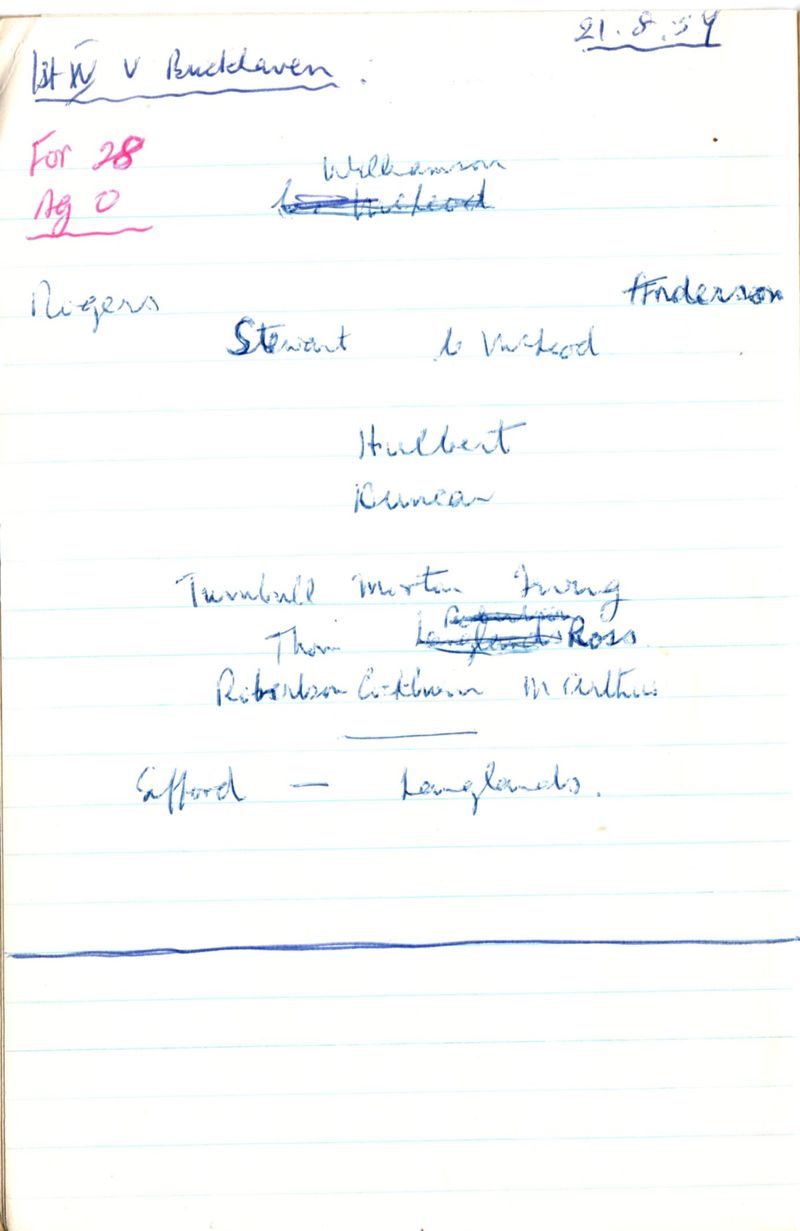 21.8.59
1st XV V Buckhaven.
For 28
Ag 0
Williamson
McLeod
Rogers
Anderson
Stewart McLeod
Hulbert
Duncan
Turnbull Morton Irving
Robertson
Thom Langlands Ross
Robertson Cockburn McArthur
Gifford — Langlands.